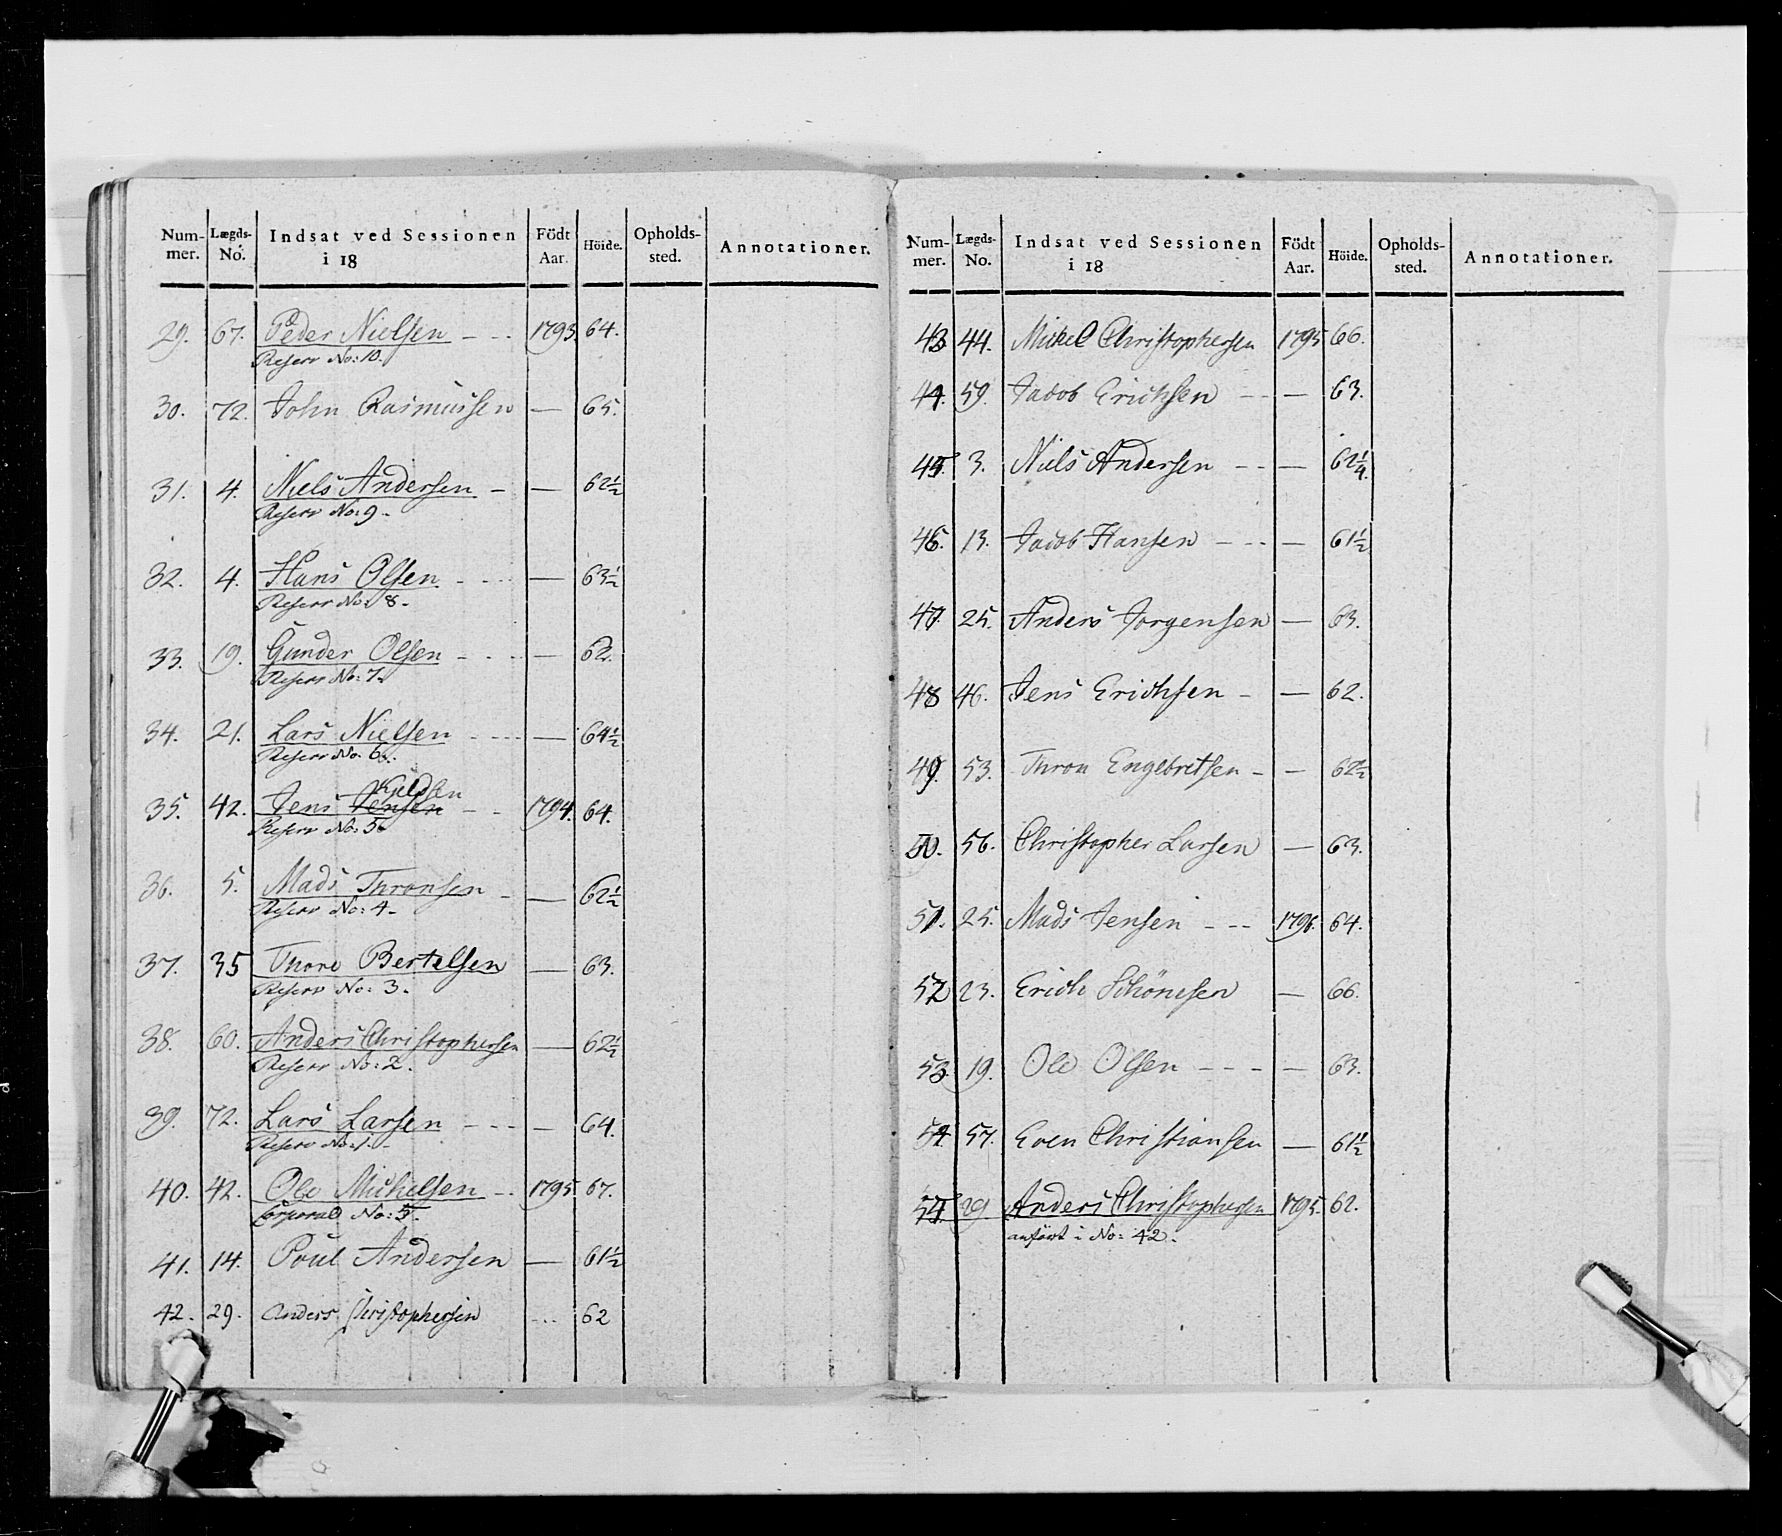 Num-mer. Lægds-No. Indsat ved Sessionen i 18 Födt Aar. Höide. Opholds-sted. Annotationer.
29. 67. Peder Nielsen - - - 1793. 64.
Reserv No: 10.
30. 72. John Rasmussen — 65.
31. 4. Niels Andersen - — 62½
Reserv No: 9.
32. 4. Hans Olsen - - - — 63½
Reserv No: 8.
33. 19. Gunder Olsen - - - — 62.
Reserv No: 7.
34. 21. Lars Nielsen - - - — 64½
Reserv No. 6.
Kjeldsen
35. 42. Jens Jensen - - 1794. 64.
Reserv No: 5.
36. 5. Mads Thronsen - — 62½
Reserv No: 4.
37. 35 Thore Bertelsen — 63.
Reserv No: 3.
38. 60. Anders Christophersen — 62½
Reserv No: 2.
39. 72. Lars Larsen - - - — 64.
Reserv No: 1.
40. 42. Ole Michelsen - - 1795. 67.
Corporal No: 5.
41. 14. Poul Andersen — 61½
42. 29. Anders Christophersen ... 62
Num-mer. Lægds-No. Indsat ved Sessionen i 18 Födt Aar. Höide. Opholds-sted. Annotationer.
43 44. Mickel Christophersen 1795 66.
44. 59. Jacob Erichsen - - — 63.
45. 3. Niels Andersen - - — 62¼.
46. 13. Jacob Hansen - - - — 61½
47. 25. Anders Jorgensen — 63.
48 46. Jens Erichsen - — 62.
49. 53. Thron Engebretsen - — 62½
50. 56. Christopher Larsen — 63.
51. 25. Mads Jensen - - - 1796. 64.
52 23. Erich Schönesen — 66.
53. 19. Ole Olsen - - - — 63.
54. 57. Even Christiansen — 61½
29 Anders Christophersen 1795. 62.
anfört i No: 42.